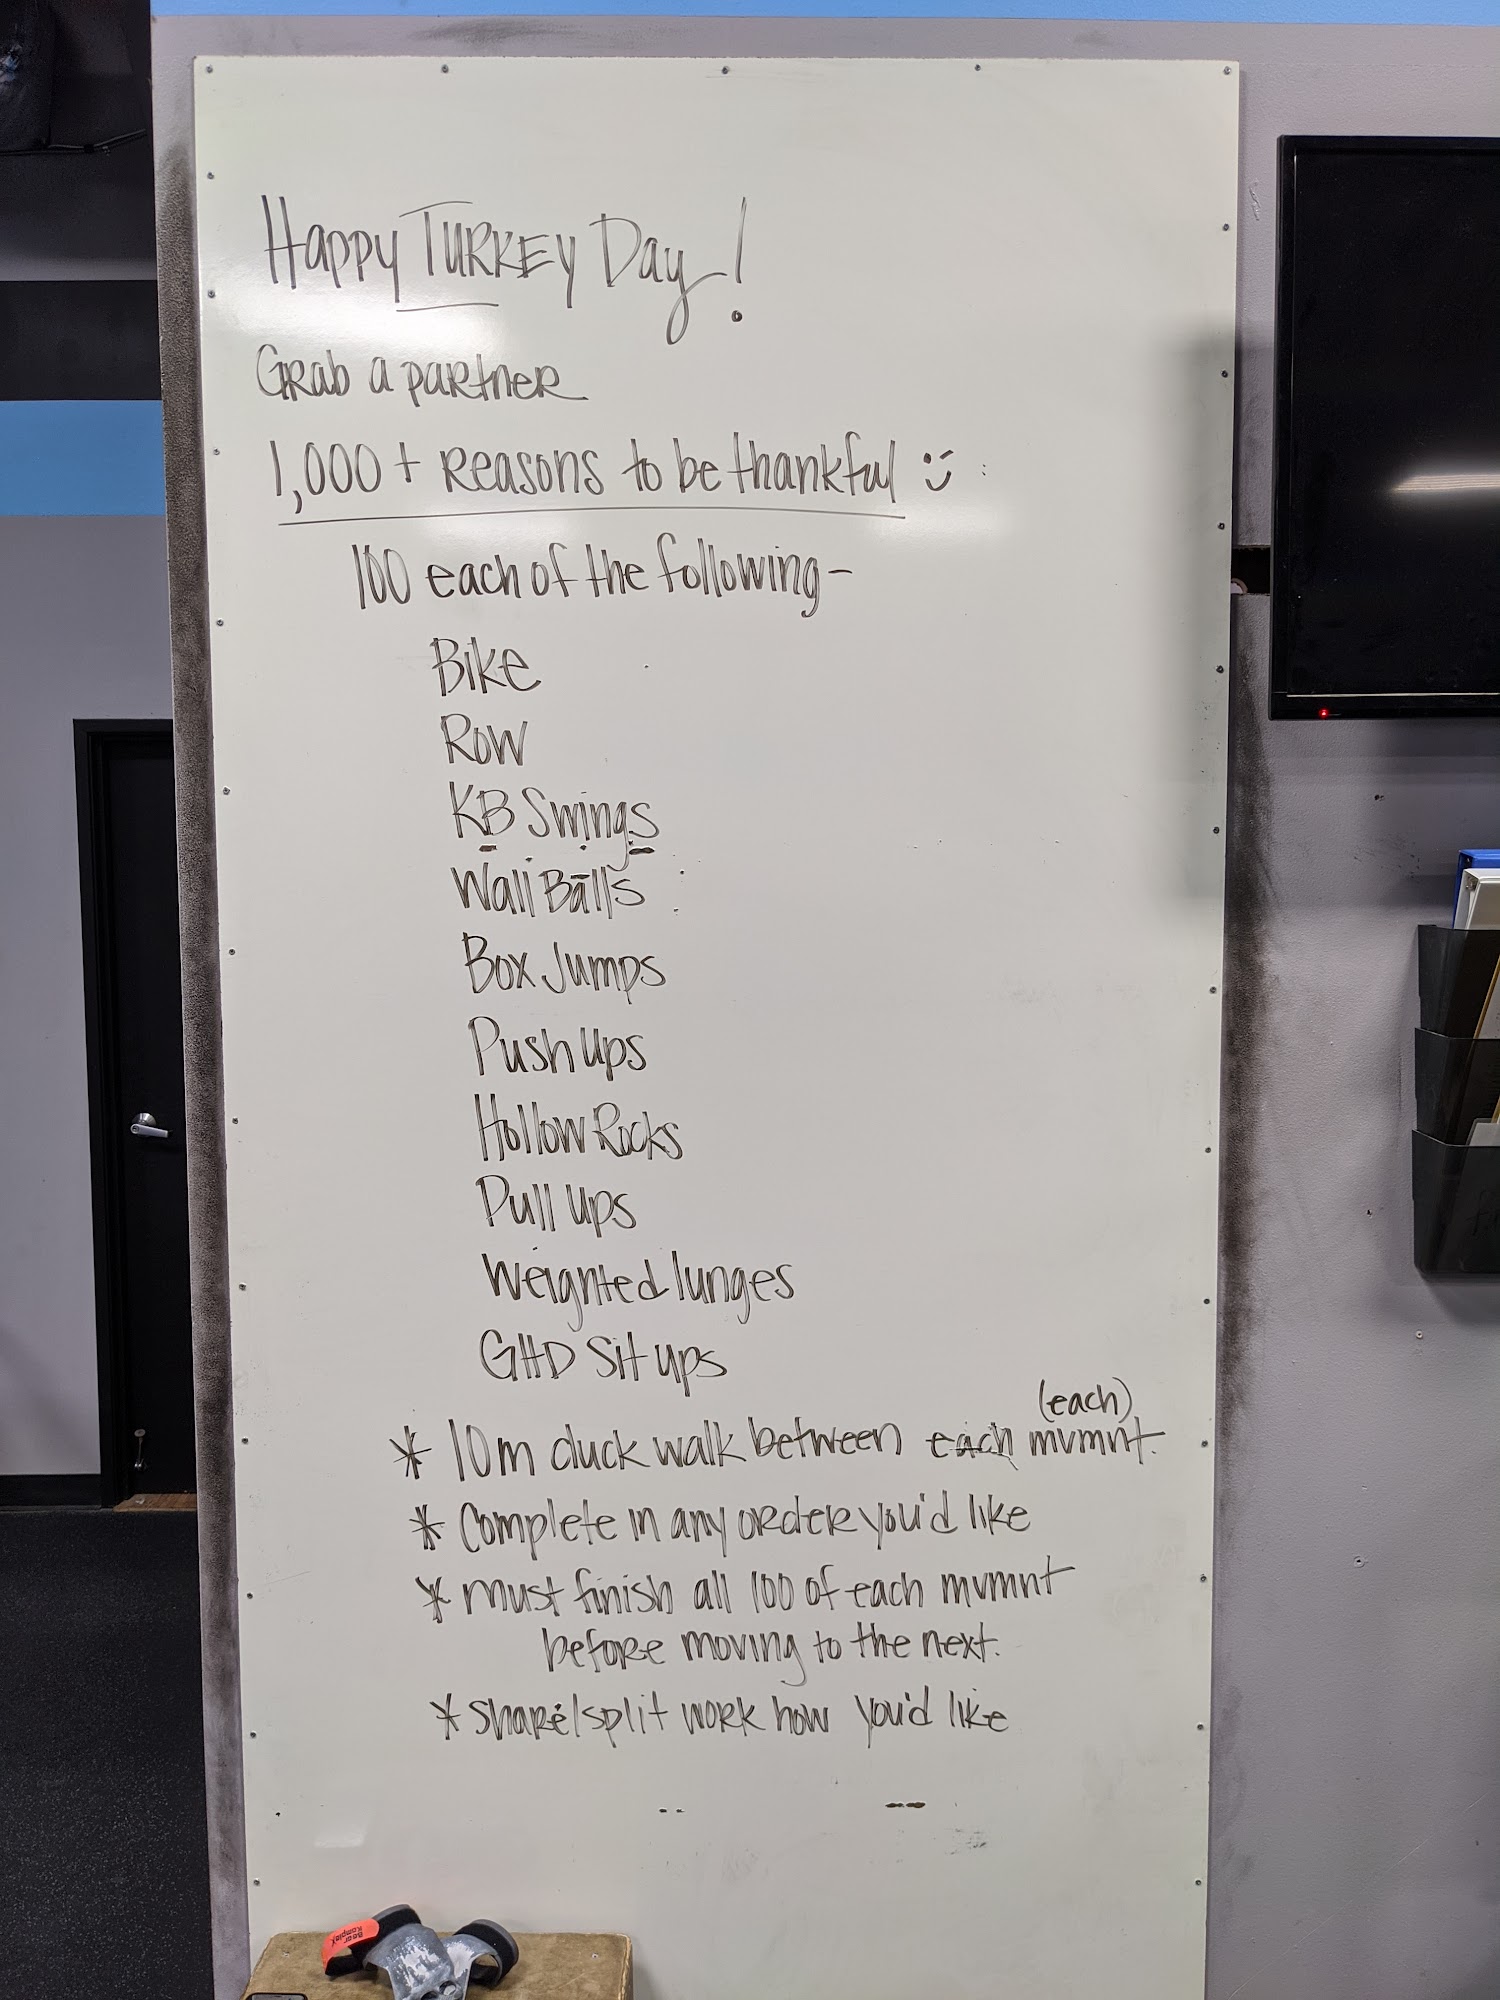 Happy TURKEY Day!
Grab a partner
1,000+ reasons to be thankful :)
100 each of the following-
Bike
Row
KB Swings
Wall Balls
Box Jumps
Push Ups
Hollow Rocks
Pull Ups
Weighted lunges
GHD Sit ups
(each)
* 10m duck walk between each mvmnt.
* Complete in any order you'd like
* must finish all 100 of each mvmnt
before moving to the next.
* share/split work how you'd like
Bear
KompleX